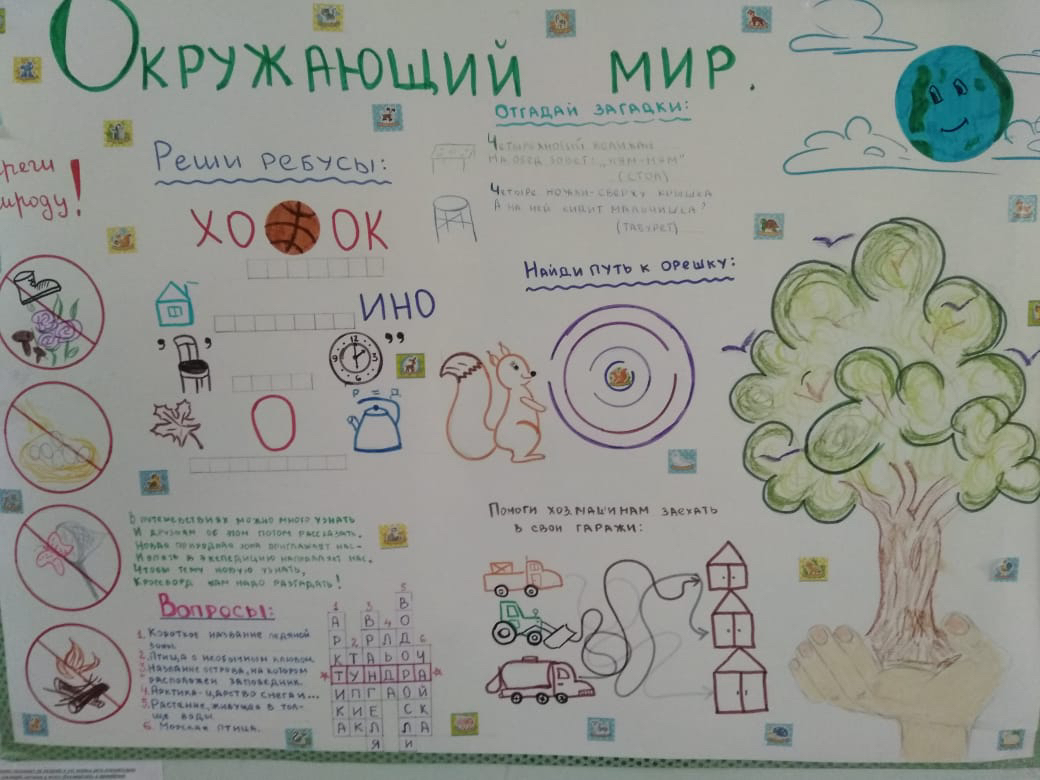 Окружающий мир.
реги
ироду!
Реши ребусы:
ХО ОК
ИНО
’ ”
12
3
6
9
О
Отгадай загадки:
Четырехногий великан
На обед зовет: „Ням-ням"
(стол)
Четыре ножки-сверху крышка
А на ней сидит мальчишка
(табурет)
Найди путь к орешку:
В путешествиях можно много узнать
И друзьям об этом потом рассказать.
Новая природная зона приглашает нас-
И опять в экспедицию направляет нас.
Чтобы тему новую узнать,
Кроссворд вам надо разгадать!
Вопросы:
1. Короткое название ледяной
зоны.
2. Птица с необычным клювом
3. Название острова, на котором
расположен заповедник.
4. Арктика-царство снега и...
5. Растение, живущая в тол-
ще воды
6. Морская птица.
5
1 3 В
А В 4 О
Р 2 Р Л Д 6
К Т А Ь О Ч
Т У Н Д Р А
И П Г А О Й
К И Е С К
А К Л Л А
Я И
Помоги хозмашинам заехать
в свои гаражи: